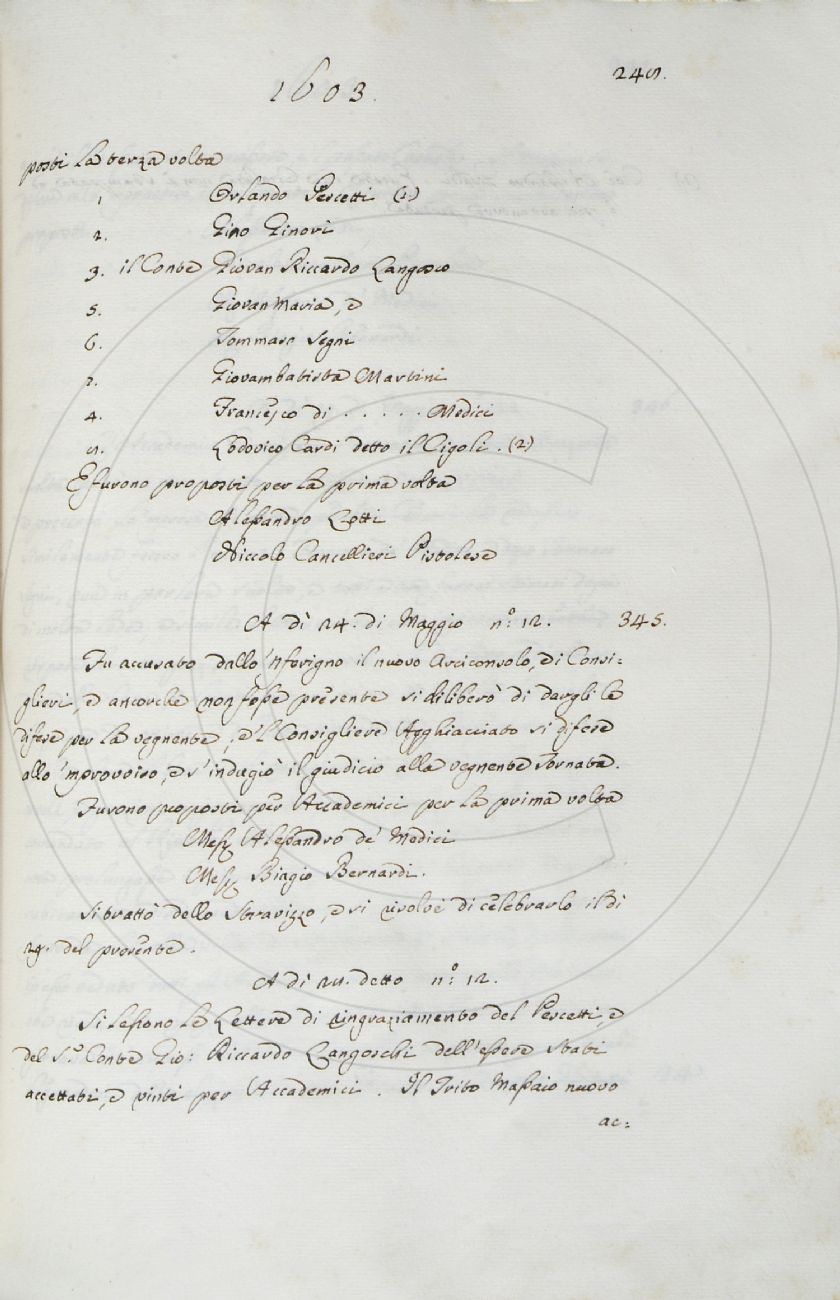 1603.
245.
posti la terza volta
1 Orlando Pescetti (1)
2. Gino Ginori
3. il Conte Giovan Riccardo Langosco
5. Giovan Maria, e
6. Tommaso Segni
7. Giovambatista Martini
4. Francesco di . . . . . Medici
8. Lodovico Cardi detto il Cigoli. (2)
E furono proposti per la prima volta
Alessandro Cotti
Niccolo Cancellieri Pistolese
A dì 24. di Maggio n.º 12. 345.
Fu accusato dallo 'Nferigno il nuovo Arciconsolo, e i Consi=
glieri, e ancorche non fosse presente si diliberò di dargli le
difese per la vegnente, e 'l Consigliere Agghiacciato si difese
allo 'mprovviso, e s'indugiò il giudicio alla vegnente Tornata.
Furono proposti per Accademici per la prima volta
Mess. Alessandro de' Medici
Mess. Biagio Bernardi.
Si trattò dello Stravizzo, e si risolvè di celebrarlo il di
29. del presente.
A di 28. detto n.º 12.
Si lessono le Lettere di ringraziamento del Pescetti, e
del S.r Conte Gio: Riccardo Langoschi dell'essere stati
accettati, e vinti per Accademici. Il Trito Massaio nuovo
ac=